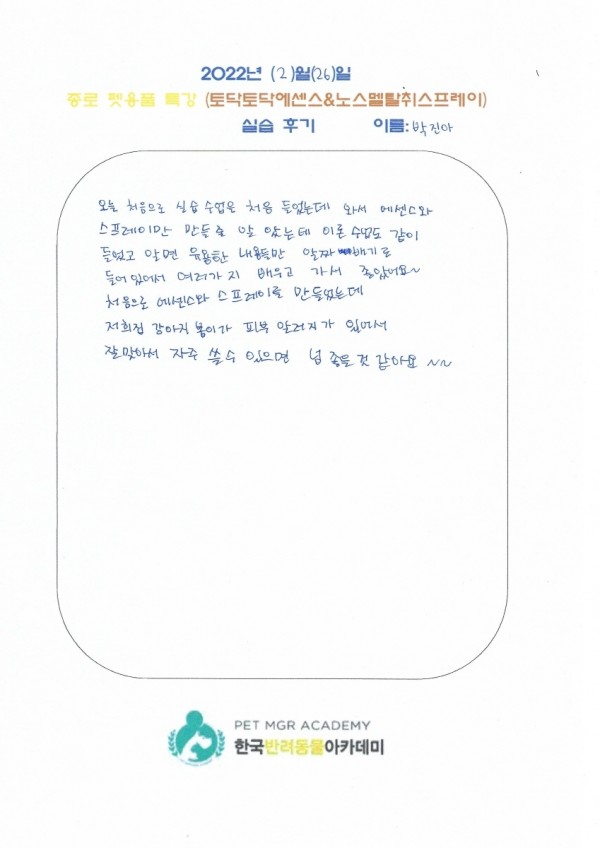 2022년 (2)월(26)일
종로 펫용품 특강 (토닥토닥에센스&노스멜탈취스프레이)
실습 후기 이름: 박진아
오늘 처음으로 실습 수업은 처음 들었는데 와서 에센스와
스프레이만 만들줄 알 았는데 이론 수업도 같이
들었고 알면 유용한 내용들만 알짜 빼기로
들어있어서 여러가지 배우고 가서 좋았어요~
처음으로 에센스와 스프레이를 만들었는데
저희집 강아지 봉이가 피부 알러지가 있어서
잘맞아서 자주 쓸수 있으면 넘 좋을것 같아요 ~~
PET MGR ACADEMY
한국반려동물아카데미